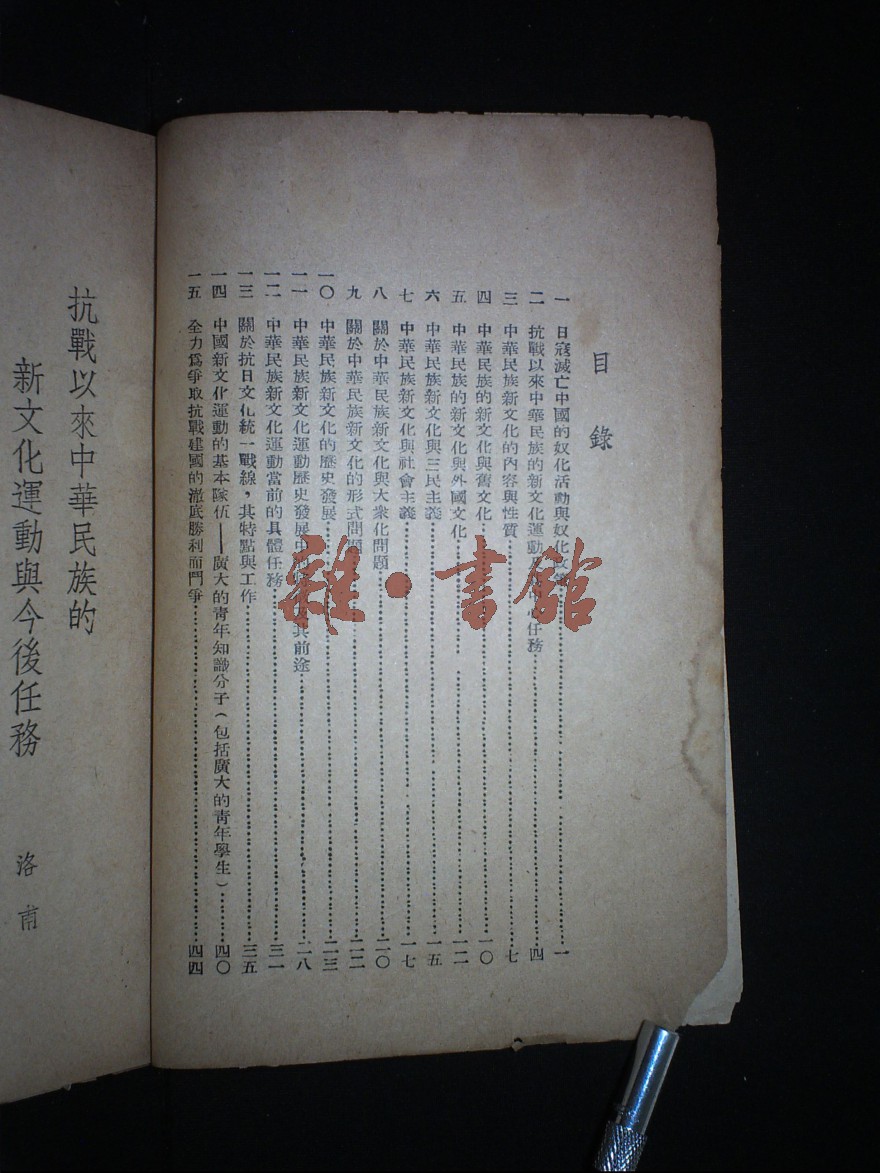 目錄
一 日寇滅亡中國的奴化活動與奴化政策……一
二 抗戰以來中華民族的新文化運動 心任務……四
三 中華民族新文化的內容與性質……七
四 中華民族的新文化與舊文化……一〇
五 中華民族的新文化與外國文化……一二
六 中華民族新文化與三民主義……一五
七 中華民族新文化與社會主義……一七
八 關於中華民族新文化與大衆化問題……二〇
九 關於中華民族新文化的形式問題……二二
一〇 中華民族新文化的歷史發展……二三
一一 中華民族新文化運動歷史發展中 其前途……二八
一二 中華民族新文化運動當前的具體任務……三一
一三 關於抗日文化統一戰線，其特點與工作……三五
一四 中國新文化運動的基本隊伍——廣大的青年知識分子(包括廣大的青年學生)……四〇
一五 全力爲爭取抗戰建國的澈底勝利而鬥爭……四四
抗戰以來中華民族的
新文化運動與今後任務
洛甫
雜·書館